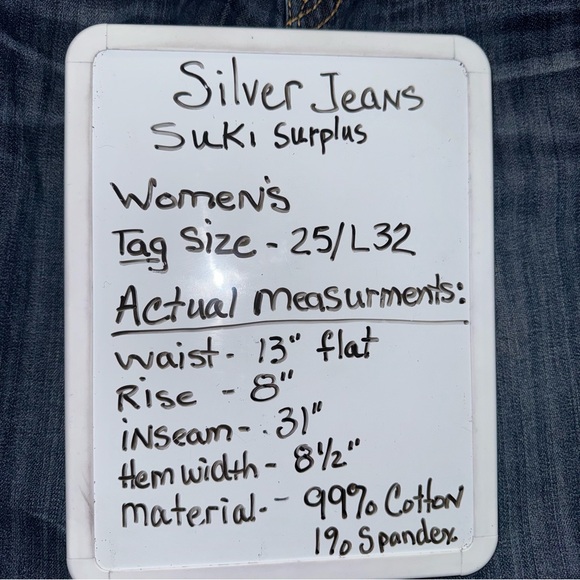 Silver Jeans
Suki Surplus
Women's
Tag Size - 25/L32
Actual measurments:
waist - 13" flat
Rise - 8"
inseam - 31"
Hem width - 8 1/2"
material - 99% Cotton
1% Spandex